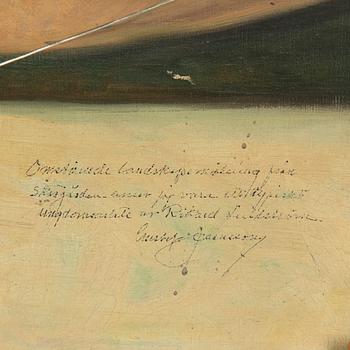 Omstående landskapsmålning från
Skärgården anser jag vara ett typiskt
ungdomsarbete av Rikard Lindström.